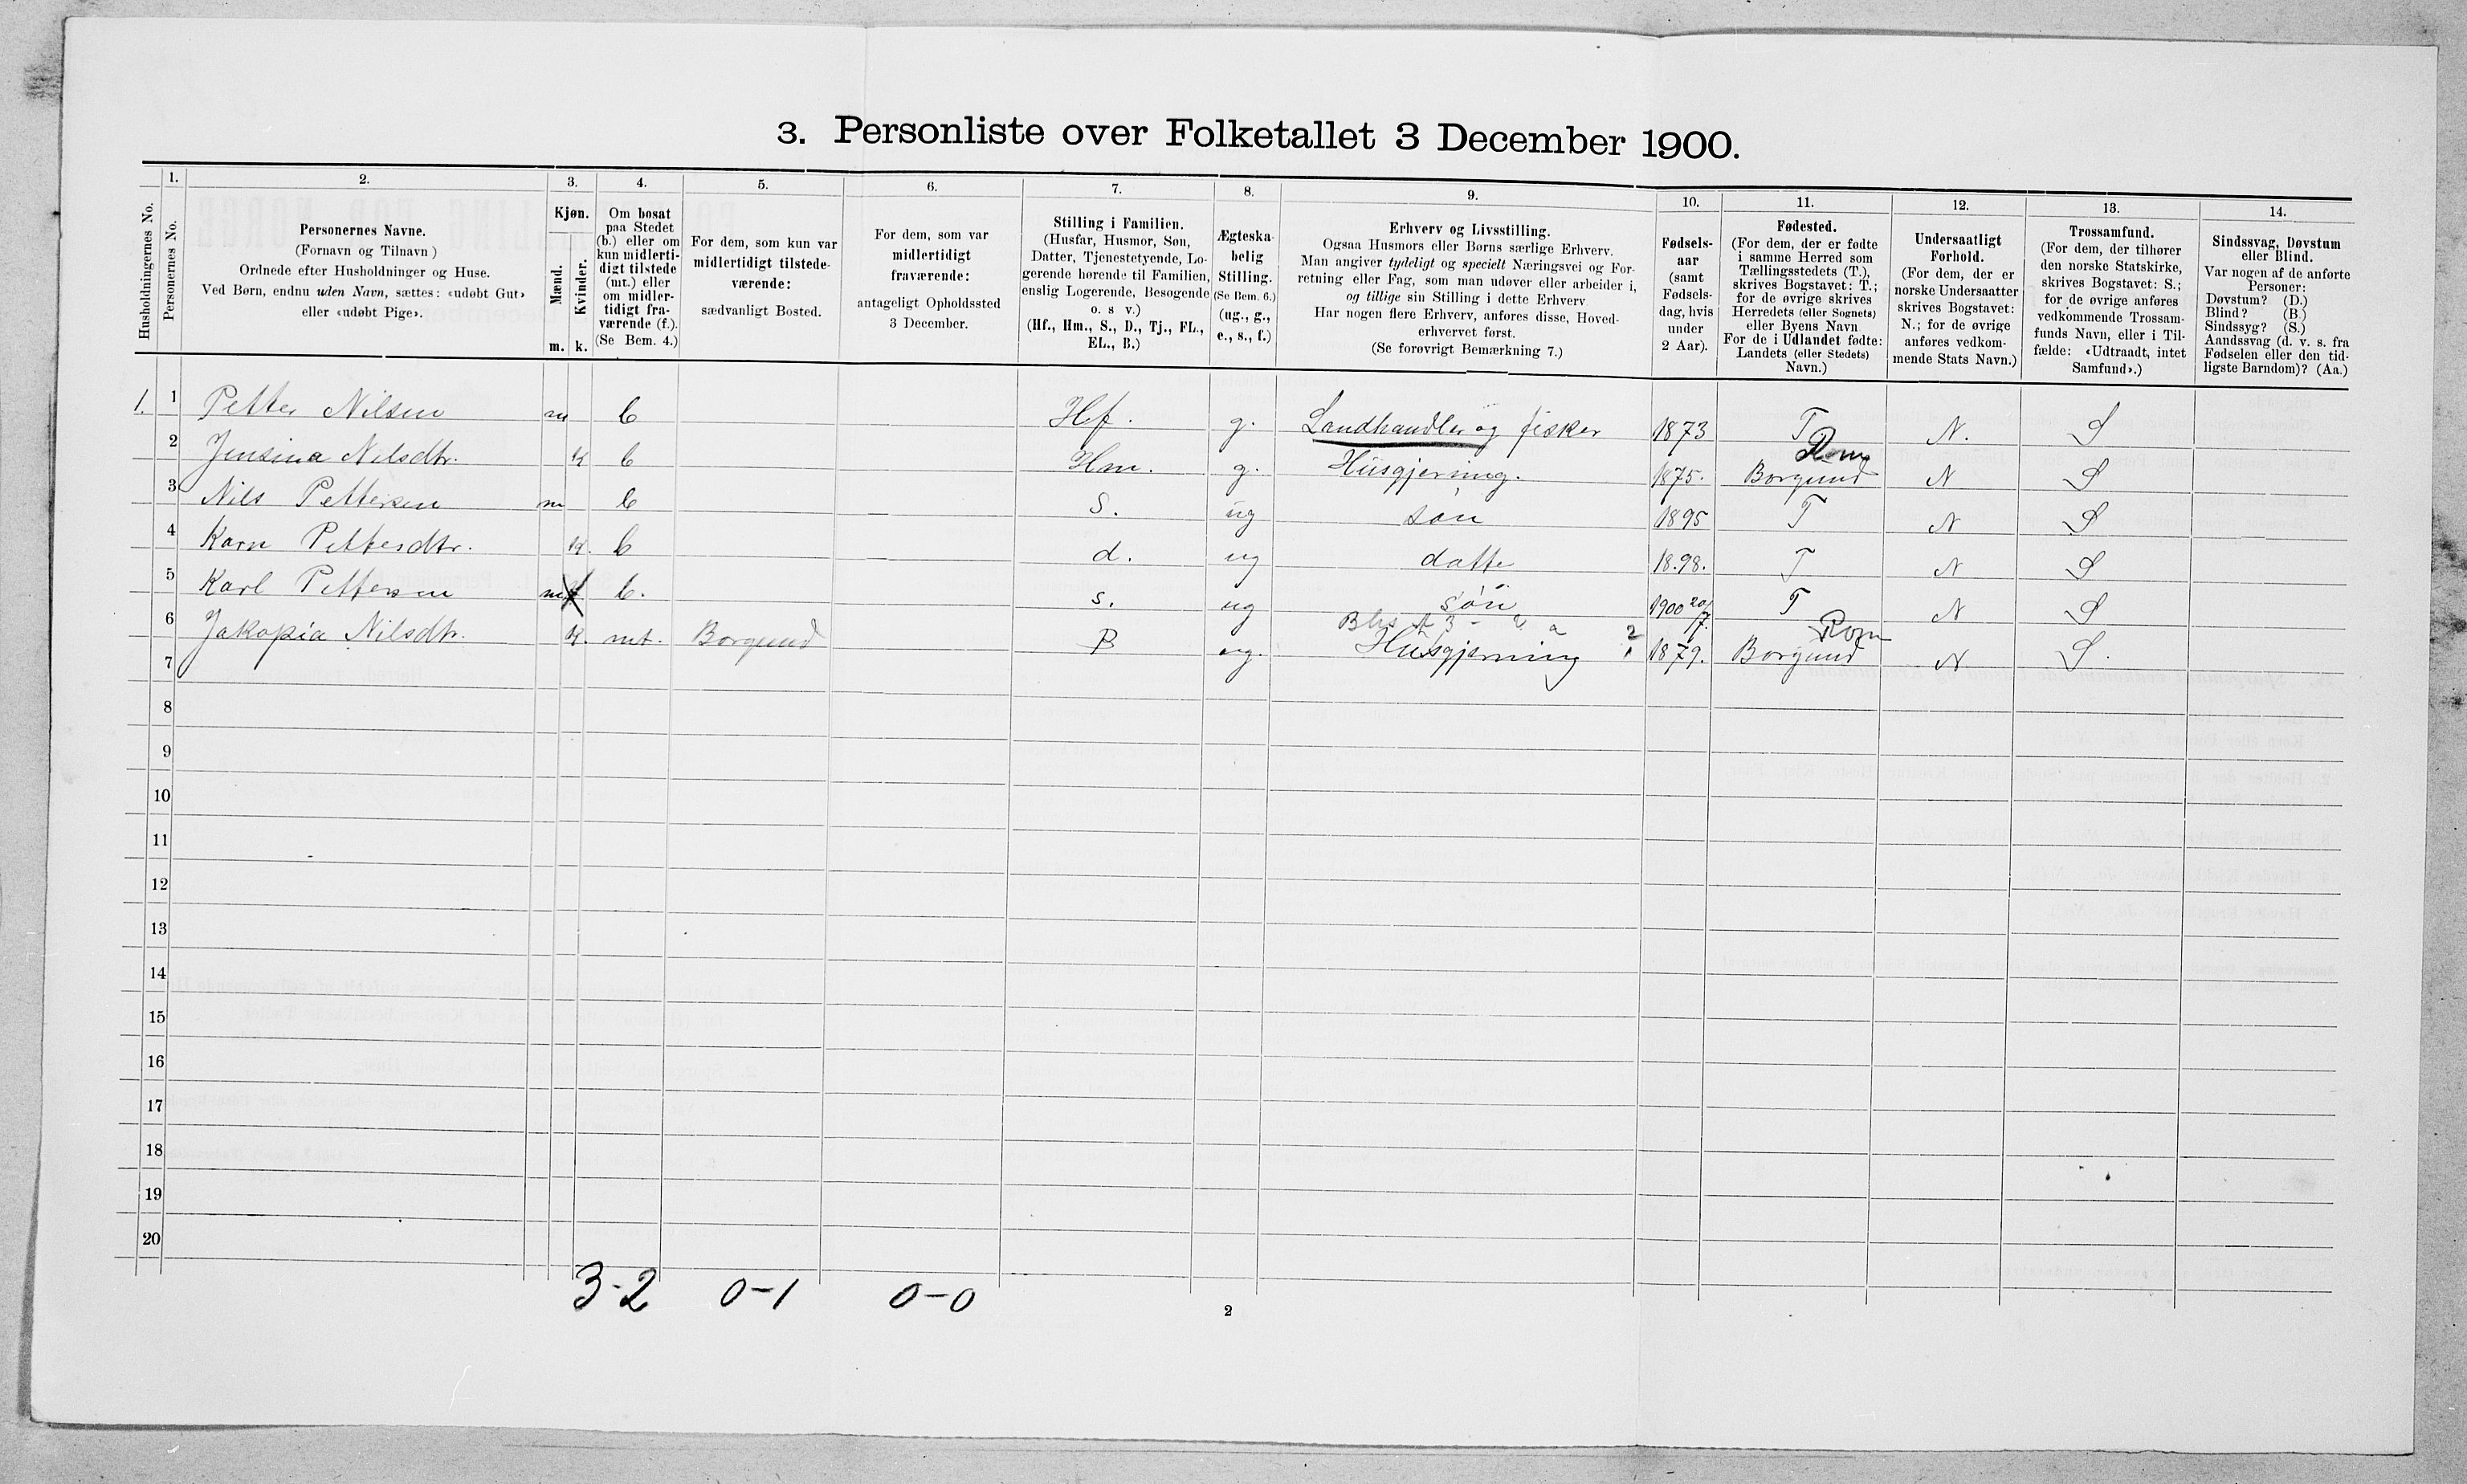 3. Personliste over Folketallet 3 December 1900.
Husholdningernes No.
1.
Personernes No.
2.
Personernes Navne.
(Fornavn og Tilnavn)
Ordnede efter Husholdninger og Huse.
Ved Børn, endnu uden Navn, sættes: «udøbt Gut»
eller «udøbt Pige».
3.
Kjøn.
Mænd.
Kvinder.
m. k.
4.
Om bosat
paa Stedet
(b.) eller om
kun midlerti-
digt tilstede
(mt.) eller
om midler-
tidigt fra-
værende (f.).
(Se Bem. 4.)
5.
For dem, som kun var
midlertidigt tilstede-
værende:
sædvanligt Bosted.
6.
For dem, som var
midlertidigt
fraværende:
antageligt Opholdssted
3 December.
7.
Stilling i Familien.
(Husfar, Husmor, Søn,
Datter, Tjenestetyende, Lo-
gerende hørende til Familien,
enslig Logerende, Besøgende
o. s v.)
(Hf., Hm., S., D., Tj., FL.,
EL., B.)
8.
Ægteska-
belig
Stilling.
(Se Bem. 6.)
(ug., g.,
e., s., f.)
9.
Erhverv og Livsstilling.
Ogsaa Husmors eller Børns særlige Erhverv.
Man angiver tydeligt og specielt Næringsvei og For-
retning eller Fag, som man udøver eller arbeider i,
og tillige sin Stilling i dette Erhverv
Har nogen flere Erhverv, anføres disse, Hoved-
erhvervet først.
(Se forøvrigt Bemærkning 7.)
10.
Fødsels-
aar
(samt
Fødsels-
dag, hvis
under
2 Aar).
11.
Fødested.
(For dem, der er fødte
i samme Herred som
Tællingsstedets (T.),
skrives Bogstavet: T.;
for de øvrige skrives
Herredets (eller Sognets)
eller Byens Navn
For de i Udlandet fødte:
Landets (eller Stedets)
Navn.)
12.
Undersaatligt
Forhold.
(For dem, der er
norske Undersaatter
skrives Bogstavet:
N.; for de øvrige
anføres vedkom-
mende Stats Navn.)
13.
Trossamfund.
(For dem, der tilhører
den norske Statskirke,
skrives Bogstavet: S.;
for de øvrige anføres
vedkommende Trossam-
funds Navn, eller i Til-
fælde: «Udtraadt, intet
Samfund».)
14.
Sindssvag, Døvstum
eller Blind.
Var nogen af de anførte
Personer:
Døvstum? (D.)
Blind? (B.)
Sindssyg? (S.)
Aandssvag (d. v. s. fra
Fødselen eller den tid-
ligste Barndom)? (Aa.)
1. 1 Petter Nilsen m b Hf. g. Landhandler og fisker 1873 T N. S
2 Jensina Nilsdtr. k b Hm. g. Husgjerning. 1875. Borgund Rom N S
3 Nils Pettersen m b S. ug søn 1895 T N S
4 Karn Pettersdtr. k. b d. ug datte 18.98. T N S
5 Karl Pettersen m b. s. ug søn 1900 20/7. T N S
6 Jakopia Nilsdtr. k. mt. Borgund B ug. Husgjerning 1879. Borgund Rom N S.
7
8
9
10
11
12
13
14
15
16
17
18
19
20
3-2 0-1 0-0
2